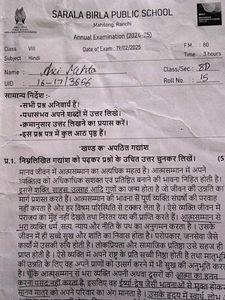 SARALA BIRLA PUBLIC SCHOOL
Mahilong, Ranchi
Annual Examination (2024-25)
Class VIII Date of Exam : 19/02/2025 F.M: 80
Subject Hindi Time: 3 hours
Name Class/Sec 8D
UID 16-17/3666 Roll No. 15
सामान्य निर्देश -
•सभी प्रश्न अनिवार्य हैं।
•यथासंभव अपने शब्दों में उत्तर लिखें।
•क्रमानुसार उत्तर लिखने का प्रयास करें।
•इस प्रश्न पत्र में कुल आठ पृष्ठ हैं।
'खण्ड क' अपठित गद्यांश
प्र.1. निम्नलिखित गद्यांश को पढ़कर प्रश्नों के उचित उत्तर चुनकर लिखें। (5
मानव जीवन में आत्मसम्मान का अत्यधिक महत्व है। आत्मसम्मान में अपने
व्यक्तित्व को अधिकाधिक सशक्त एवं प्रतिष्ठित बनाने की भावना निहित होती है।
इससे शक्ति, साहस, उत्साह आदि गुणों का जन्म होता है जो जीवन की उन्नति का
मार्ग प्रशस्त करते हैं। आत्मसम्मान की भावना से पूर्ण व्यक्ति संघर्षों की परवाह
नहीं करता है और हर विषम परिस्थिति से टक्कर लेता है। ऐसे व्यक्ति जीवन में
पराजय का मुँह नहीं देखते तथा निरंतर यश की प्राप्ति करते हैं। आत्मसम्मान से
भरा व्यक्ति धर्म, सत्य, न्याय और नीति के पथ का अनुगमन करता है। उसके
जीवन में ही सच्चे सुख और शांति का निवास होता है। परोपकार, जनसेवा जैसे
कार्यों में उसकी रुचि होती है। लोकप्रियता और सामाजिक प्रतिष्ठा उसे सहज ही
प्राप्त होती है। ऐसे व्यक्ति में अपने राष्ट्र के प्रति सच्ची निष्ठा होती है तथा मातृभूमि
की उन्नति के लिए वह अपने प्राणों को उत्सर्ग करने में भी सुख की अनुभूति करता
है। चूँकि आत्मसम्मान से भरा व्यक्ति अपनी अथवा दूसरों की आत्मा का हनन
करना पसंद नहीं करता है, इसलिए वह ईर्ष्या-द्वेष जैसी भावनाओं से मुक्त होकर
मानव मात्र को अपने परिवार का अंग मानता है। उसके हृदय में स्वार्थ, लोभ